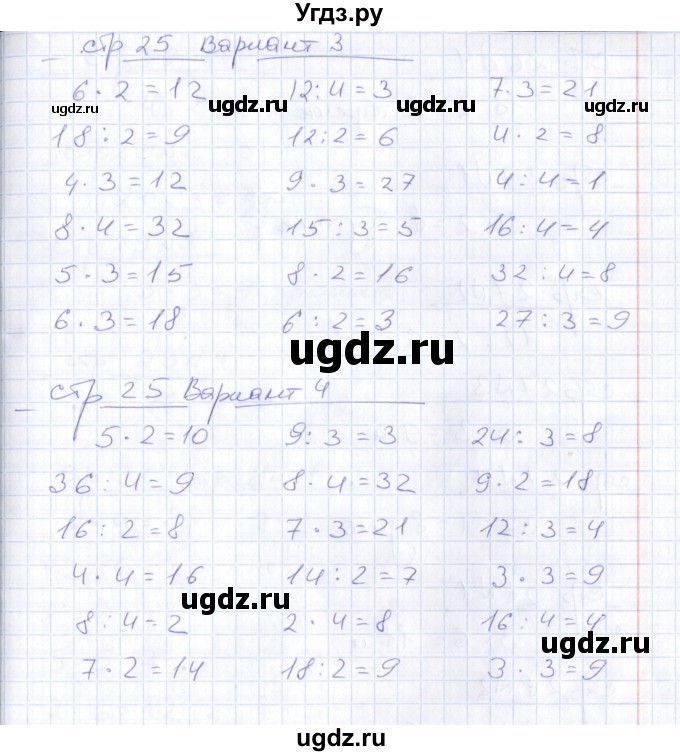 Угдз.ру
стр 25 Вариант 3
6 · 2 = 12 12 : 4 = 3 7 · 3 = 21
ugdz.ru ugdz.ru ugdz.ru
18 : 2 = 9 12 : 2 = 6 4 · 2 = 8
4 · 3 = 12 9 · 3 = 27 4 : 4 = 1
8 · 4 = 32 15 : 3 = 5 16 : 4 = 4
5 · 3 = 15 8 · 2 = 16 32 : 4 = 8
6 · 3 = 18 6 : 2 = 3 27 : 3 = 9
ugdz.ru
стр 25 Вариант 4
5 · 2 = 10 9 : 3 = 3 24 : 3 = 8
36 : 4 = 9 8 · 4 = 32 9 · 2 = 18
16 : 2 = 8 7 · 3 = 21 12 : 3 = 4
4 · 4 = 16 14 : 2 = 7 3 · 3 = 9
ugdz.ru
8 : 4 = 2 2 · 4 = 8 16 : 4 = 4
ugdz.ru
7 · 2 = 14 18 : 2 = 9 3 · 3 = 9
ugdz.ru